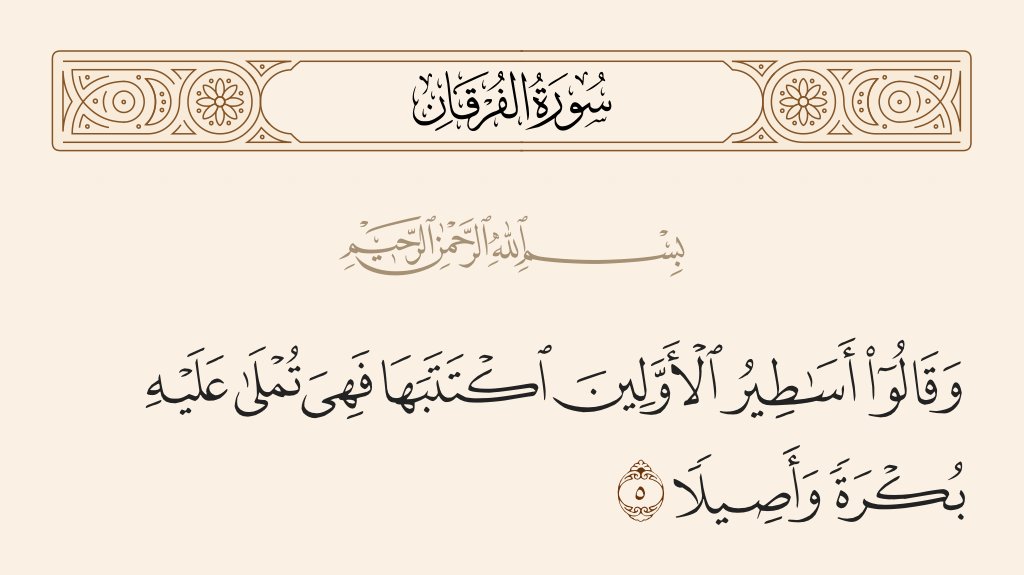 سُورَةُ الفُرْقَانِ
بِسْمِ ٱللَّهِ ٱلرَّحْمَٰنِ ٱلرَّحِيمِ
وَقَالُوٓا۟ أَسَٰطِيرُ ٱلْأَوَّلِينَ ٱكْتَتَبَهَا فَهِىَ تُمْلَىٰ عَلَيْهِ
بُكْرَةً وَأَصِيلًا ٥